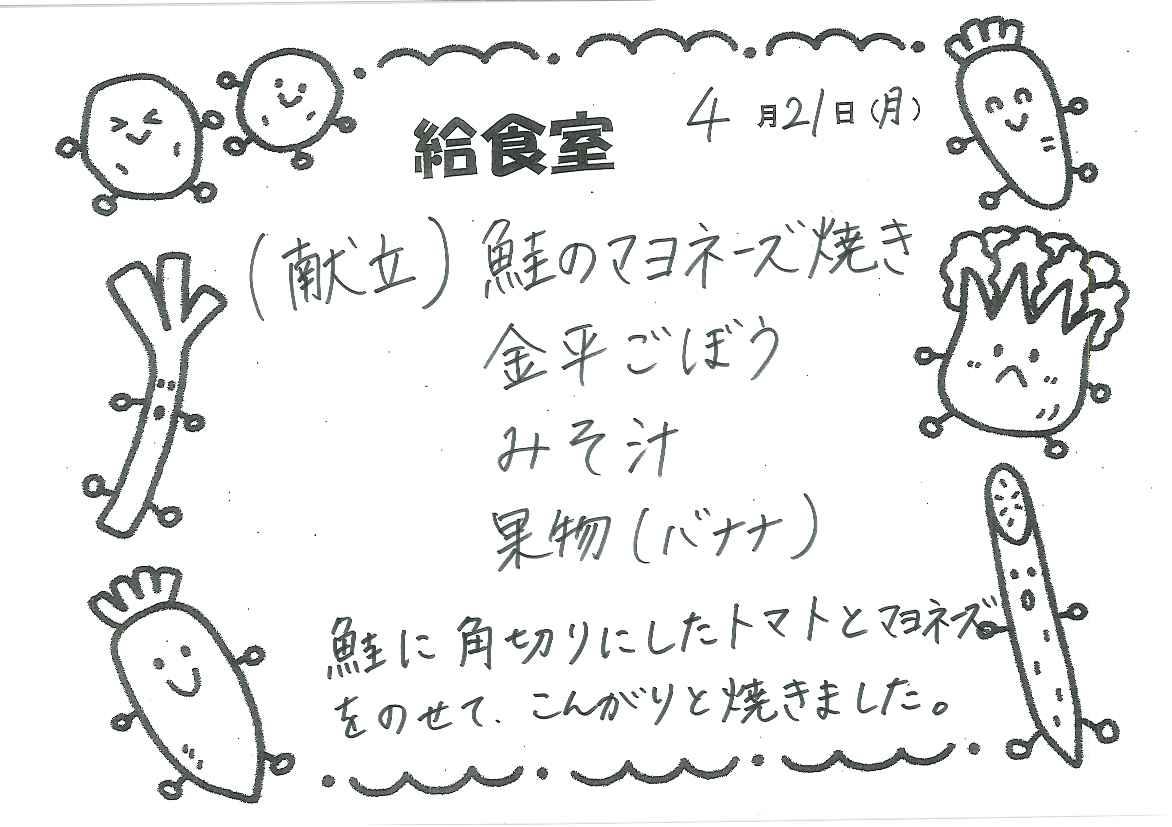 給食室 4月21日(月)
(献立) 鮭のマヨネーズ焼き
金平ごぼう
みそ汁
果物(バナナ)
鮭に角切りにしたトマトとマヨネーズ
をのせて、こんがりと焼きました。